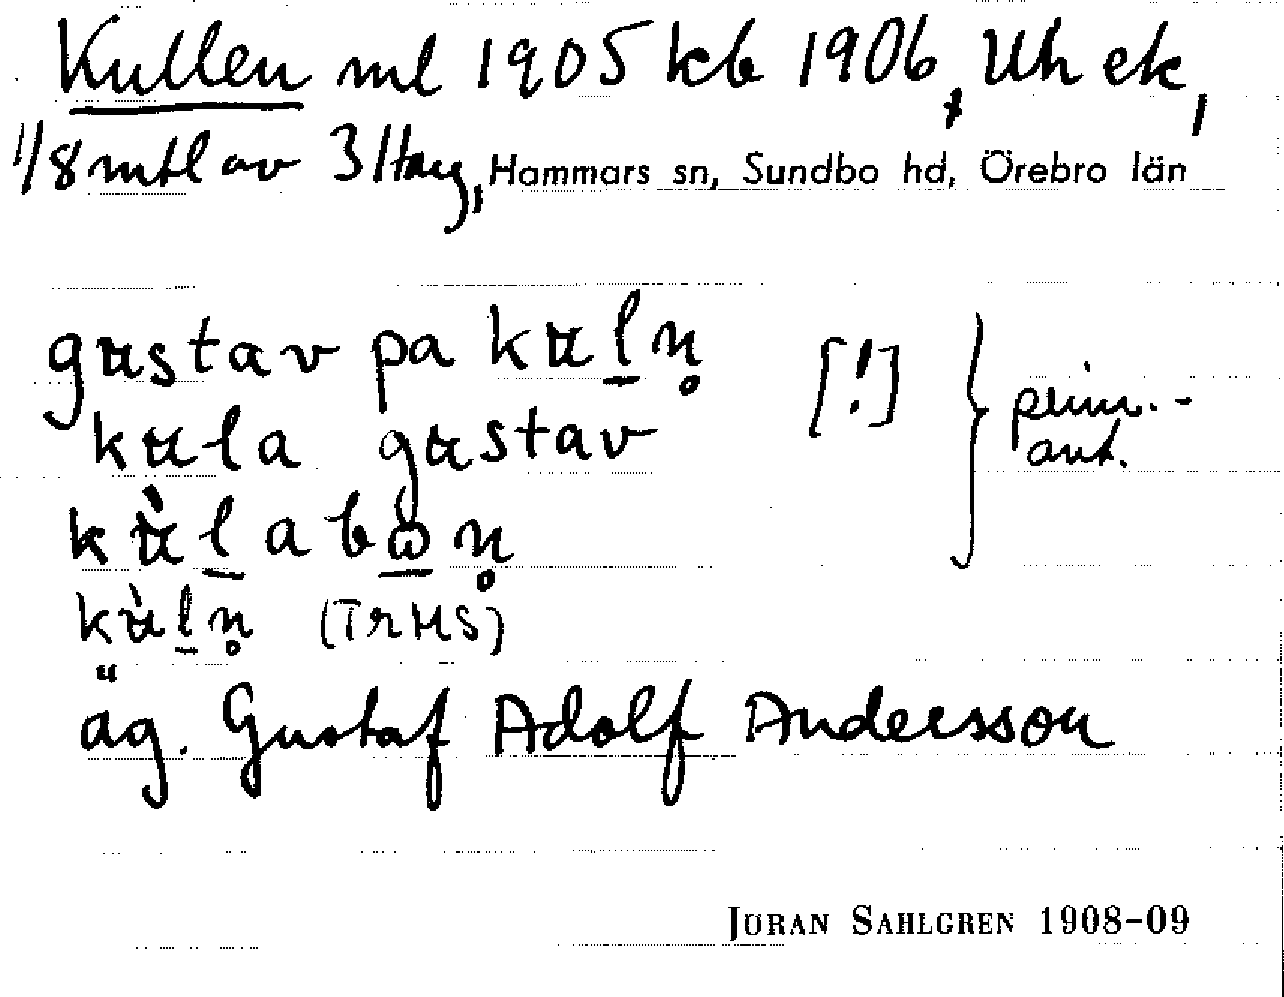 Kullen ml 1905 kb 1906, Uh ek,
1/8 mtl av 3 Hag, Hammars sn, Sundbo hd, Örebro län
gʉstav pa kʉl̠n̥ [!]
kʉla gʉstav prim.-
ant.
kʉ̀l̠abω̠n̥
kʉ̀l̠n̥ (TrHS)
äg. Gustaf Adolf Andersson
JÖRAN SAHLGREN 1908-09